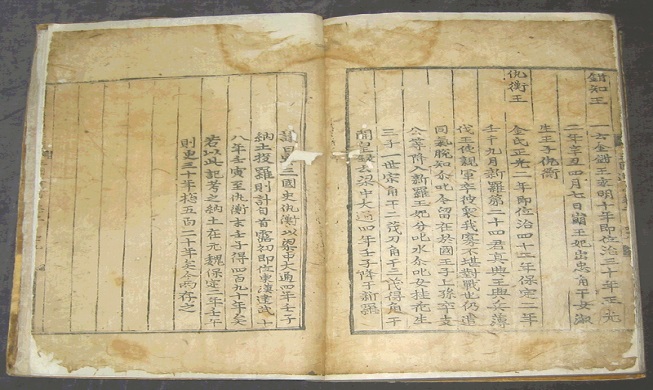 鉗知王
一云金鉗王永明十年即位治三十年正光
二年辛丑四月七日崩王妃出忠角干女淑
生王子仇衡
仇衡王
金氏正光二年即位治四十二年保定二年
壬午九月新羅第二十四君真興王興兵薄
伐王使親軍卒彼衆我寡不堪對戰也仍遣
同氣脫知尒叱今留在於國王子上孫卒支
公等降入新羅王妃分叱水尒叱女桂花生
三子一世宗角干二茂刀角干三茂得角干
開皇錄云梁中大通四年壬子降于新羅
議曰案三國史仇衡以梁中大通四年壬子
納土投羅則計自首露初即位東漢建武十
八年壬寅至仇衡末壬子得四百九十年矣
若以此記考之納土在元魏保定二年壬午
則更三十年捴五百二十年矣今兩存之